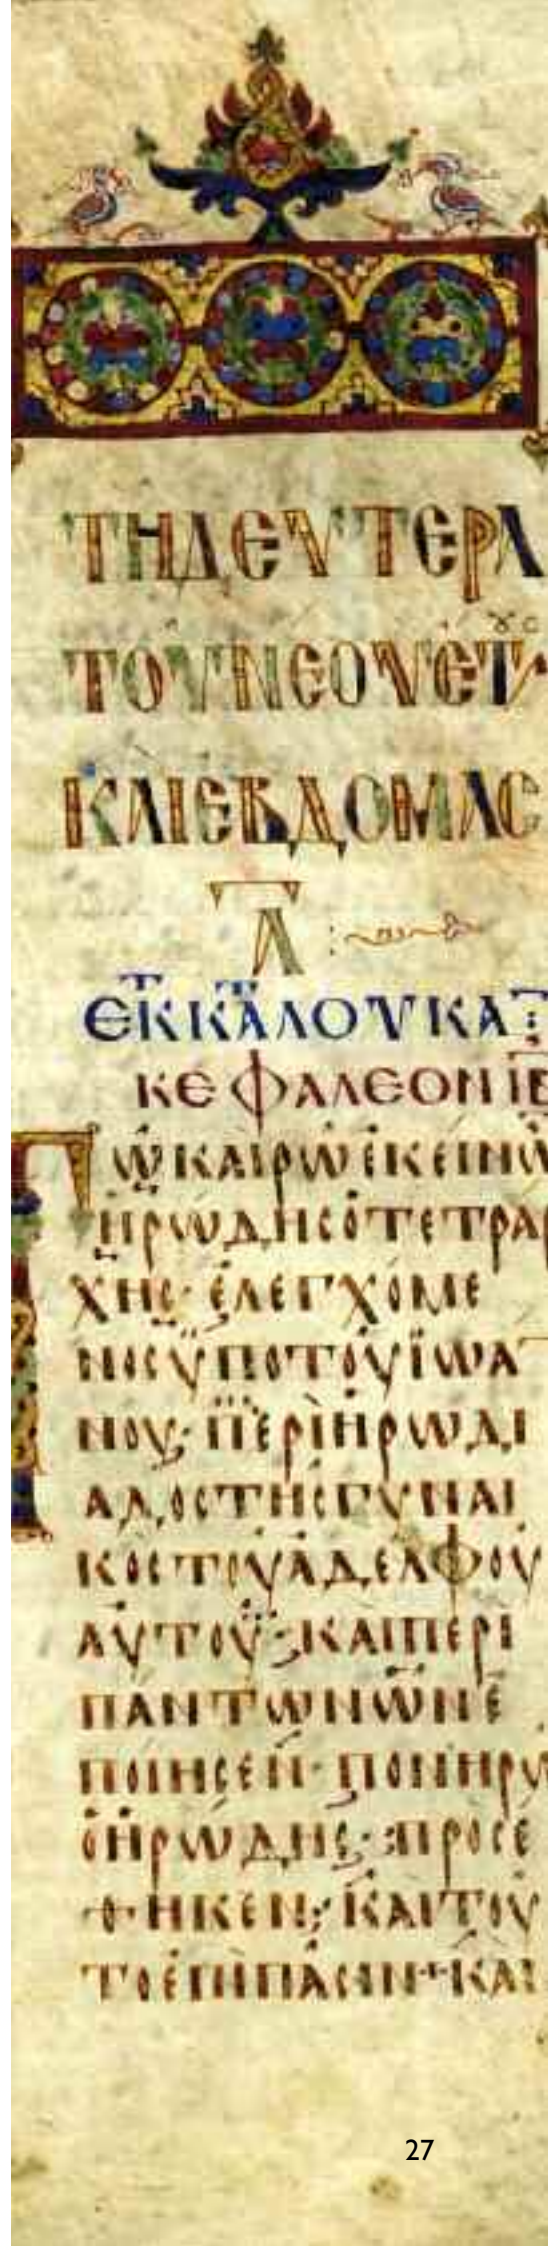 ΤΗ ΔΕΥΤΕΡΑ
ΤΟΥ ΝΕΟΥ ΕΤ
ΚΑΙ ΕΒΔΟΜΑC
Α :
ΕΚ Κ ΛΟΥΚΑ
ΚΕΦΑΛΕΟΝ ΙΒ
Τῶ ΚΑΙΡῶ ΕΚΕΙΝῶ
ΗΡωΔΗC Ὁ ΤΕΤΡΑΡ
ΧΗC· ΕΛΕΓΧΌΜΕ
ΝΟC ΫΠΟ ΤΟΥ ΪωΑ
ΝΟΥ· ΠΕΡῚ ΗΡωΔΙ
ΑΔΟC ΤΗC ΓΥΝΑΙ
ΚΟC ΤΟΥ ΑΔΕΛΦΟΥ
ΑΥΤΟΥ· ΚΑΙ ΠΕΡΙ
ΠΑΝΤωΝ ωΝ Ε
ΠΟΙΗCΕΝ· ΠΟΝΗΡῶ
Ὁ ΗΡωΔΗC· ΠΡΟCΕ
ΘΗΚΕΝ· ΚΑΙ ΤΟΥ
ΤΟ ΕΠῚ ΠΑCΙΝ + ΚΑΙ
27